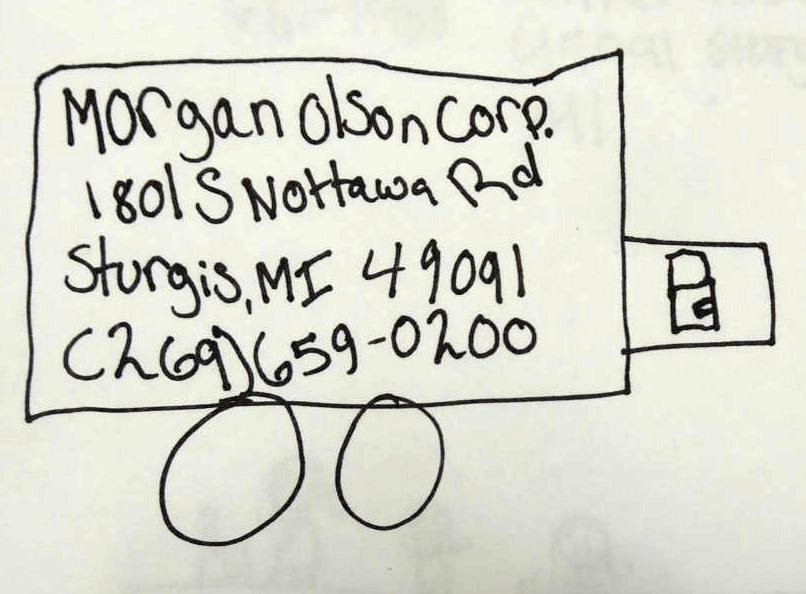 Morgan Olson Corp.
1801 S Nottawa Rd
Sturgis, MI 49091
(269)659-0200